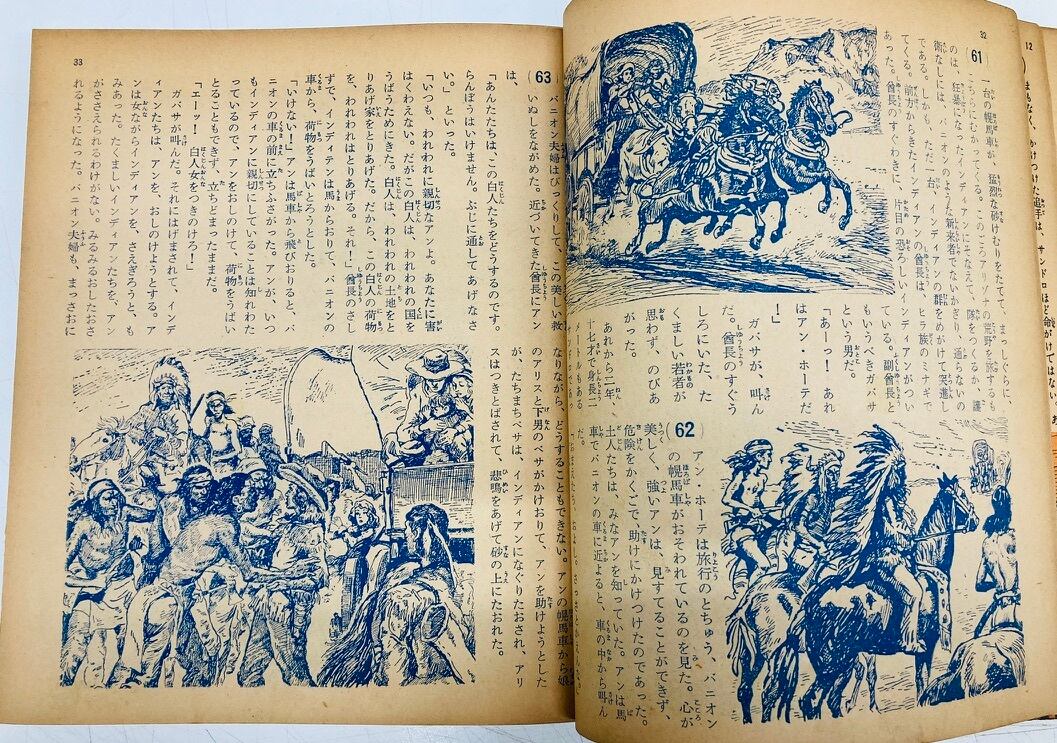 32
(61)
一台の幌馬車が、猛烈な砂けむりをたてて、まっしぐらに、
こっちにむかってくる。このころアリゾナの荒野を旅するも
のは、狂暴になったインディアンにそなえて、隊をつくるか、護
衛なしには、バニオンのような新来者でないかぎり、通らないの
である。しかも、ただ一台、インディアンの群をめがけて突進し
てくる。前方からきたインディアンの酋長は、ヒラ族のミナギで
あった。酋長のすぐわきに、片目の恐ろしいインディアンがつい
ている。副酋長と
もいうべきガバサ
という男だ。
「あーっ！　あれ
はアン・ホーテだ
！」
ガバサが、叫ん
だ。酋長のすぐう
しろにいた、た
くましい若者が
思わず、のびあ
がった。
あれから二年、
十七才で身長二
メートルもある
(62)
アン　ホーテは旅行のとちゅう、バニオン
の幌馬車がおそわれているのを見た。心が
美しく、強いアンは、見すてることができず、
危険をかくごで、助けにかけつけたのであった。
土人たちは、みなアンを知っていた。アンは馬
車でバニオンの車に近よると、車の中から叫ん
だ。
33
(63)
バニオン夫婦はびっくりして、この美しい救
いぬしをながめた。近づいてきた酋長にアン
は、
「あんたたちは、この白人たちをどうするのです。
らんぼうはいけません。ぶじに通してあげなさ
い。」といった。
「いつも、われわれに親切なアンよ。あなたに害
はくわえない。だがこの白人は、われわれの国を
うばうためにきた。白人は、われわれの土地をと
りあげ家をとりあげた。だから、この白人の荷物
を、われわれはとりあげる。それ！」酋長のさし
ずで、インディアンは馬からおりて、バニオンの
車から、荷物をうばいとろうとした。
「いけない！」アンは馬車から飛びおりると、バ
ニオンの車の前に立ちふさがった。アンが、いつ
もインディアンに親切にしていることは知れわた
っているので、アンをおしのけて、荷物をうばい
とることもできず、立ちどまったままだ。
「エーッ！　白人女をつきのけろ！」
ガバサが叫んだ。それにはげまされて、インデ
ィアンたちは、アンを、おしのけようとする。ア
ンは女ながらインディアンを、さえぎろうと、も
みあった。たくましいインディアンたちを、アン
がささえられるわけがない。みるみるおしたおさ
れるようになった。バニオン夫婦も、まっさおに
なりながら、どうすることもできない。アンの幌馬車から娘
のアリスと下男のベサがかけおりて、アンを助けようとした
が、たちまちベサは、インディアンになぐりたおされ、アリ
スはつきとばされて、悲鳴をあげて砂の上にたおれた。